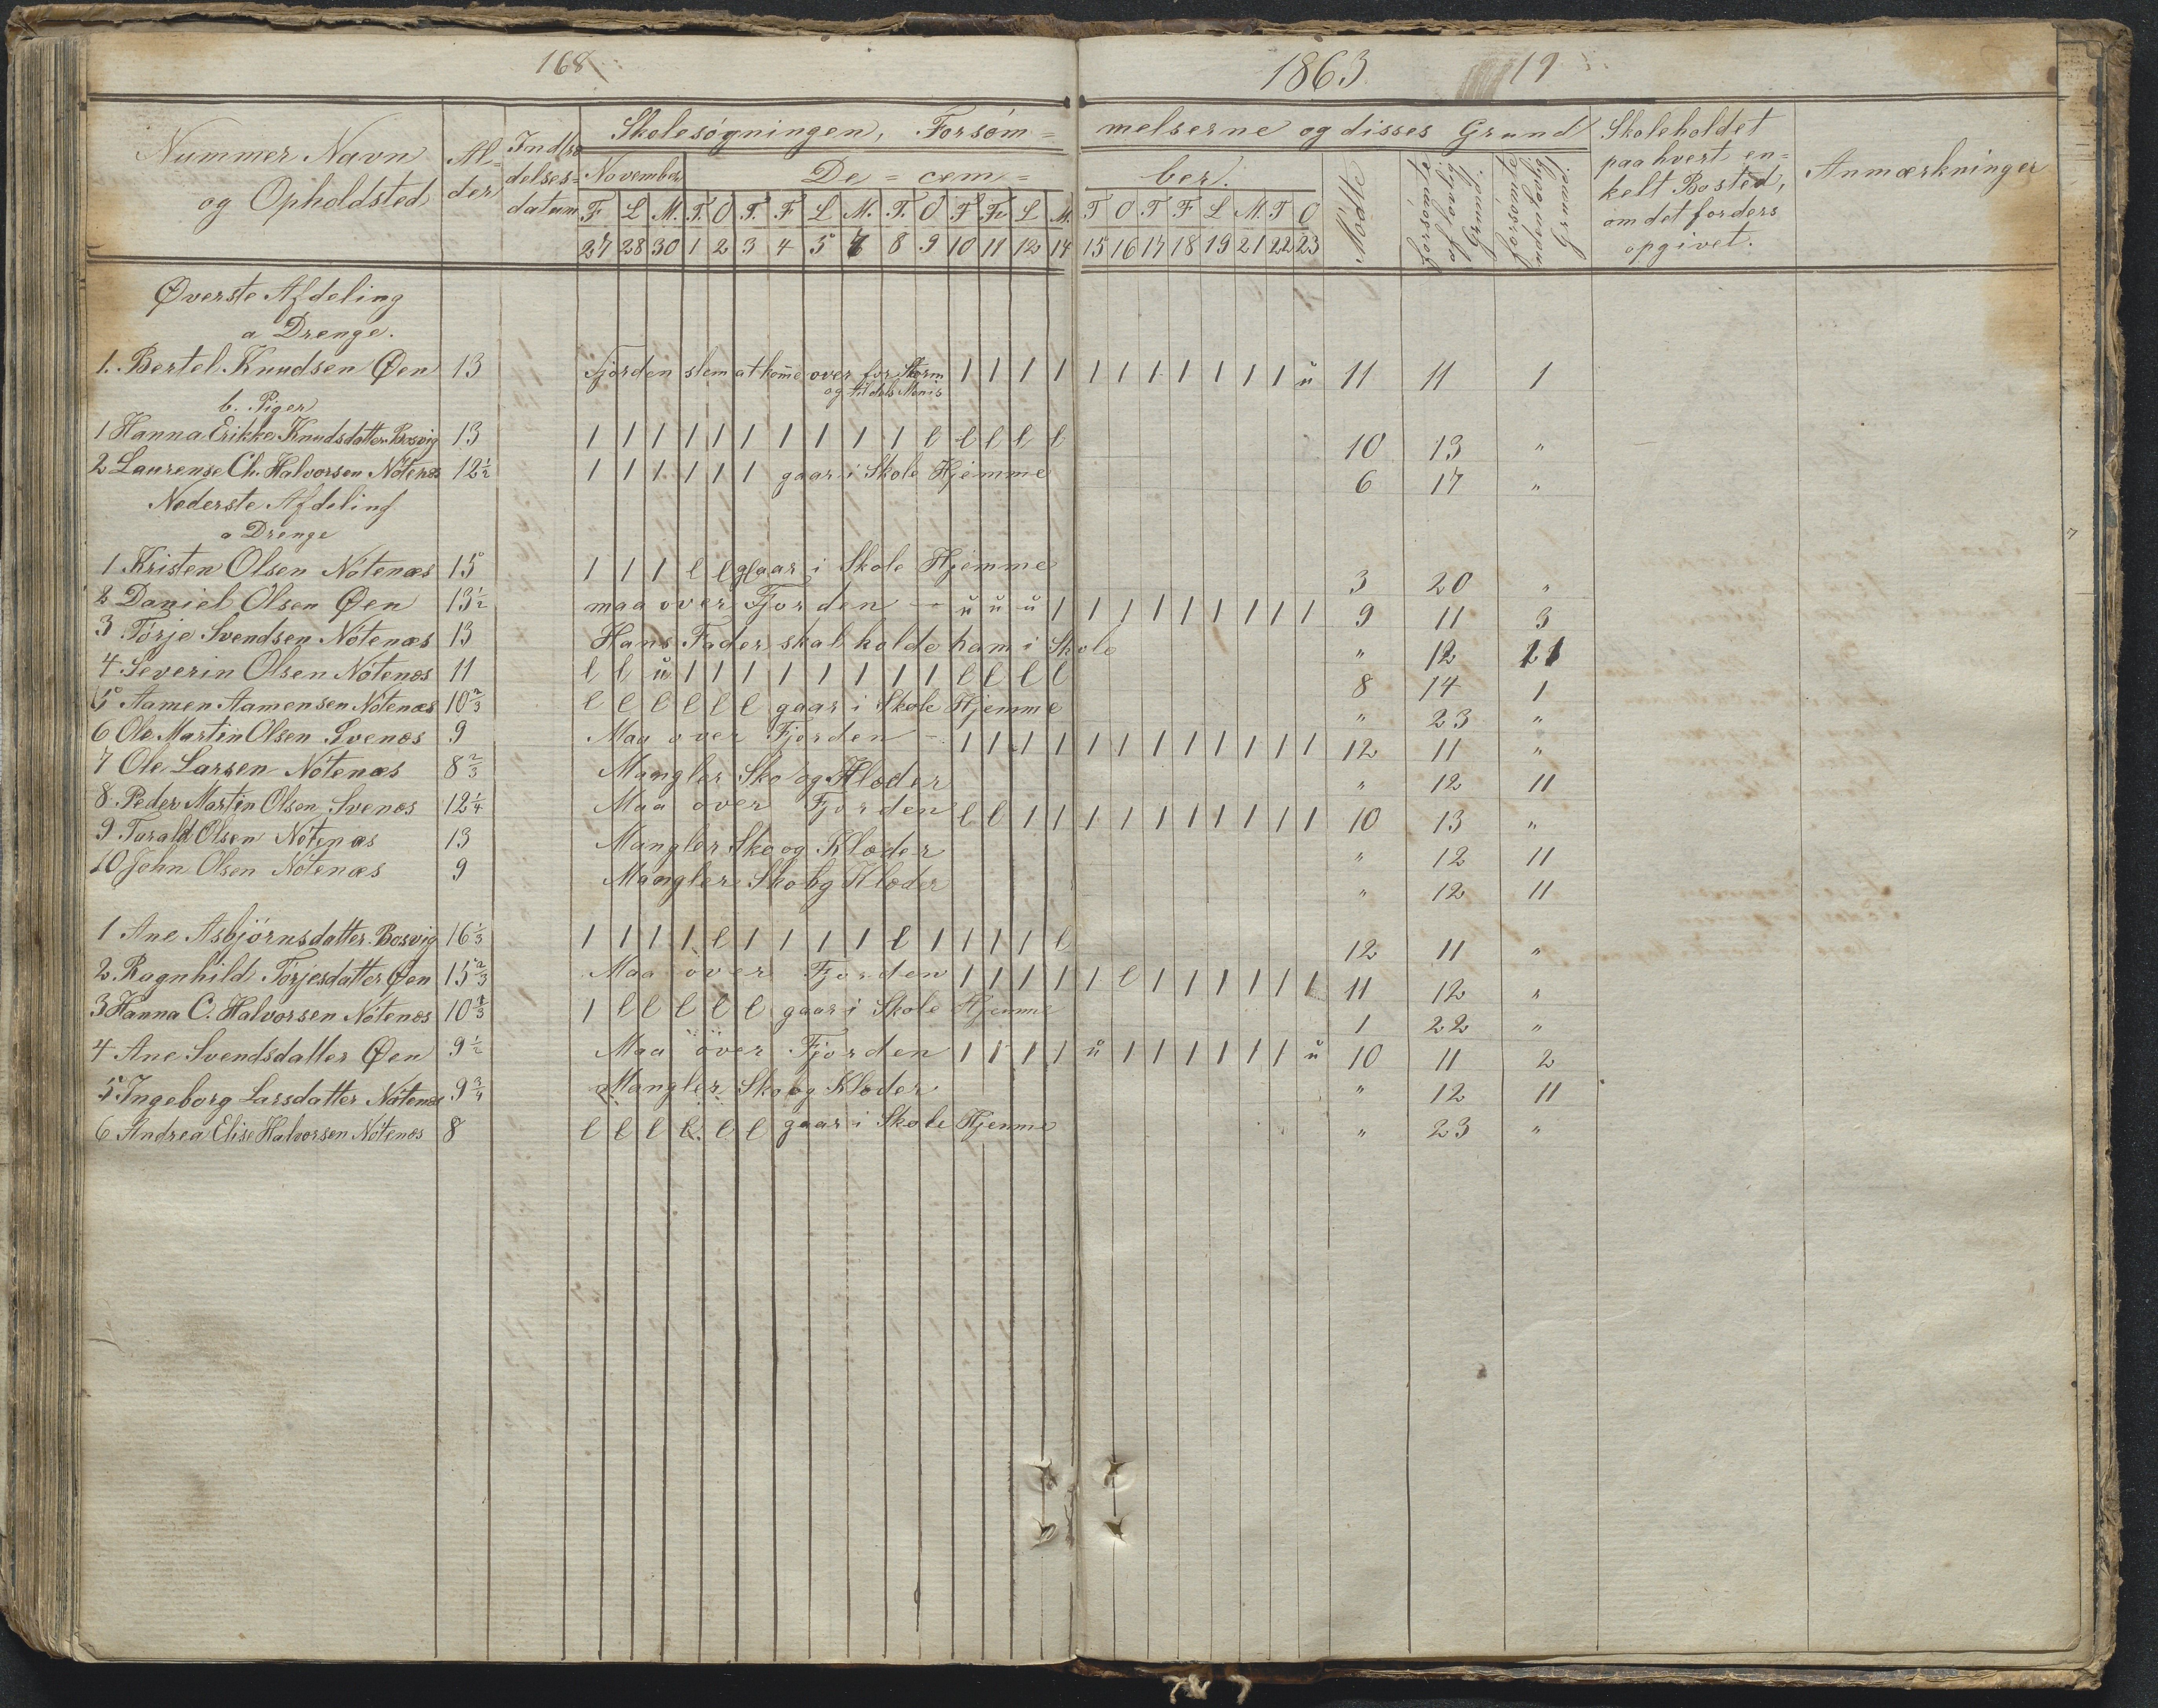 168
1863
19
Nummer Navn og Opholdsted
Al-der
Indtrædelsesdatum
Skolesøgningen, Forsøm= melserne og disses Grund
November De = cem = ber.
Mødte
forsømte af lovlig Grund
forsømte uden lovlig Grund
Skoleholdet paa hvert en= kelt Bosted, om det forders opgivet.
Anmærkninger
F L M. T. O T. F L M. T. O F Fr L M. T O T F L M. T O
27 28 30 1 2 3 4 5 7 8 9 10 11 12 14 15 16 17 18 19 21 22 23
Øverste Afdeling
a Drenge.
1. Bertel Knudsen Øen 13 Fjorden slem at kom̄e over for Storm og tildels Menis 1 1 1 1 1 1 1 1 1 1 1 ŭ 11 11 1
b. Piger
1 Hanna Erikke Knudsdatter Bosvig 13 1 1 1 1 1 1 1 1 1 1 l l l l l 10 13 "
2 Laurense Ch. Halvorsen Nótenæs 12½ 1 1 1 1 1 1 gaar i Skole Hjemme 6 17 "
Nederste Afdeling
a Drenge
1 Kristen Olsen Nótenæs 15 1 1 1 l l l gaar i Skole Hjemme 3 20 "
2 Daniel Olsen Øen 13½ maa over Fjorden - ŭ ŭ ŭ 1 1 1 1 1 1 1 1 1 9 11 3
3 Tórje Svendsen Nótenæs 13 Hans Fader skal holde ham i Skole " 12 11
4 Severin Olsen Nótenæs 11 l l ŭ 1 1 1 1 1 1 1 1 l l l l 8 14 1
5 Aamen Aamensen Nótenæs 10⅔ l l l l l l gaar i Skole Hjemme " 23 "
6 Ole Martin Olsen Svenæs 9 Maa over Fjorden - 1 1 1 1 1 1 1 1 1 1 1 1 12 11 "
7 Ole Larsen Nótenæs 8⅔ Mangler Sko og Klæder " 12 11
8 Peder Martin Olsen Svenæs 12¼ Maa over Fjorden l l 1 1 1 1 1 1 1 1 1 1 10 13 "
9 Tarald Olsen Nótenæs 13 Mangler Sko og Klæder " 12 11
10 John Olsen Nótenæs 9 Mangler Sko og Klæder " 12 11
1 Ane Asbjörnsdatter Bosvig 16⅓ 1 1 1 1 l 1 1 1 1 l 1 1 1 1 l 12 11 "
2. Ragnhild Torjesdatter Øen 15⅔ Maa over Fjorden 1 1 1 1 1 l 1 1 1 1 1 1 11 12 "
3 Hanna C. Halvorsen Nótenæs 10⅔ 1 l l l l l gaar i Skole Hjemme 1 22 "
4 Ane Svendsdatter Øen 9½ Maa over Fjorden 1 1 1 1 ŭ 1 1 1 1 1 1 ŭ 10 11 2
5 Ingeborg Larsdatter Nótenæs 9¾ Mangler Sko og Klæder " 12 11
6 Andrea Elise Halvorsen Nótenæs 8 l l l l l l gaar i Skole Hjemme " 23 "